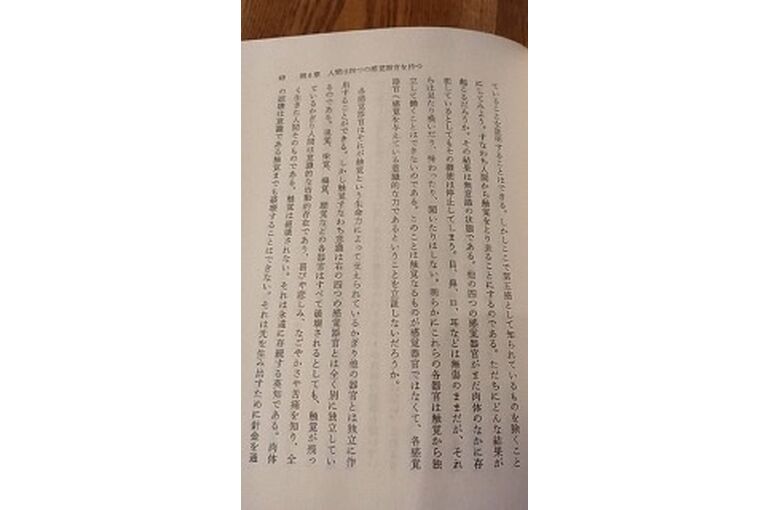 69 第6章 人間は四つの感覚器官を持つ
ていることを証明することはできる。しかしここで第五感として知られているものを除くこと
にしてみよう。すなわち人間から触覚をとり去ることにするのである。ただちにどんな結果が
起こるだろうか。その結果は無意識の状態である。他の四つの感覚器官がまだ肉体のなかに存
在しているとしてもその機能は停止してしまう。目、鼻、口、耳などは無傷のままだが、それ
らは見たり嗅いだり、味わったり、聞いたりはしない。明らかにこれらの各器官は触覚から独
立して働くことはできないのである。このことは触覚なるものが感覚器官ではなくて、各感覚
器官へ感覚を与えている意識的な力であるということを立証しないだろうか。
各感覚器官はそれが触覚という生命力によって支えられているかぎり他の器官とは独立に作
用することができる。しかし触覚すなわち意識は右の四つの感覚器官とは全く別に独立してい
るのである。視覚、味覚、嗅覚、聴覚などの各器官はすべて破壊されるとしても、触覚が残っ
ているかぎり人間は意識的な活動的存在であり、喜びや悲しみ、なごやかさや苦痛を知り、全
く生きた人間そのものである。触覚は破壊されない。それは永遠に存続する英知である。肉体
の破壊は意識である触覚までも破壊することはできない。それは光を生み出すために針金を通